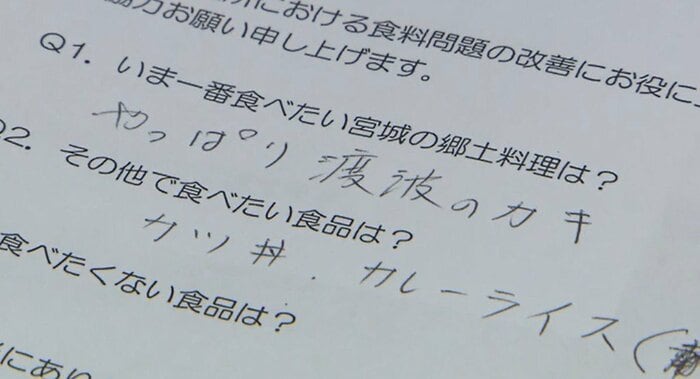 における食料問題の改善にお役に
協力お願い申し上げます。
Q1. いま一番食べたい宮城の郷土料理は？
やっぱり渡波のカキ
Q2. その他で食べたい食品は？
カツ丼．カレーライス（
食べたくない食品は？
にあり